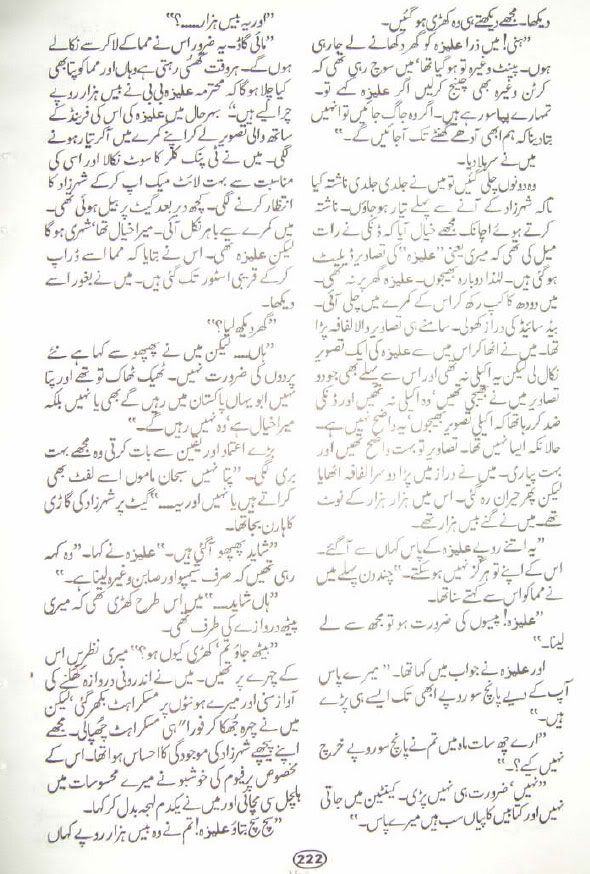 دیکھا۔ مجھے دیکھتے ہی وہ کھڑی ہو گئیں۔
"ہنی! میں ذرا علیزہ کو گھر دکھانے لے جا رہی
ہوں۔ پینٹ وغیرہ تو ہو گیا تھا' میں سوچ رہی تھی کہ
کرٹن وغیرہ بھی چینج کر لیں اگر علیزہ کہے تو۔
تمہارے پپا سو رہے ہیں۔ اگر وہ جاگ جائیں تو انہیں
بتا دینا کہ ہم ابھی آدھے گھنٹے تک آ جائیں گے۔"
میں نے سر ہلا دیا۔
وہ دونوں چلی گئیں تو میں نے جلدی جلدی ناشتہ کیا
تاکہ شہرزاد کے آنے سے پہلے تیار ہو جاؤں۔ ناشتہ
کرتے ہوئے اچانک مجھے خیال آیا کہ ڈنکی نے رات
میل کی تھی کہ میری یعنی "علیزہ" کی تصاویر ڈیلیٹ
ہو گئی ہیں۔ لہٰذا دوبارہ بھیجوں۔ علیزہ گھر پر نہ تھی۔
میں دودھ کا کپ رکھ کر اس کے کمرے میں چلی آئی۔
بیڈ سائیڈ کی دراز کھولی۔ سامنے ہی تصاویر والا لفافہ پڑا
تھا۔ میں نے اٹھا کر اس میں سے علیزہ کی ایک تصویر
نکال لی لیکن یہ اکیلی نہ تھی اور اس سے پہلے بھی جو دو
تصاویر میں نے بھیجی تھیں' وہ اکیلی نہ تھیں اور ڈنکی
ضد کر رہا تھا کہ اکیلی تصویر بھیجوں' یہ واضح نہیں ہے۔
حالانکہ ایسا نہیں تھا۔ تصاویر تو بہت واضح تھیں اور
بہت پیاری۔ میں نے دراز میں پڑا دوسرا لفافہ اٹھایا
لیکن پھر حیران رہ گئی۔ اس میں ہزار ہزار کے نوٹ
تھے۔ میں نے گنے بیس ہزار تھے۔
"یہ اتنے روپے علیزہ کے پاس کہاں سے آ گئے۔
اس کے اپنے تو ہرگز نہیں ہو سکتے۔" چند دن پہلے میں
نے مما کو اس سے کہتے سنا تھا۔
"علیزہ! پیسوں کی ضرورت ہو تو مجھ سے لے
لینا۔"
اور علیزہ نے جواب میں کہا تھا۔ "میرے پاس
آپ کے دیے پانچ سو روپے ابھی تک ایسے ہی پڑے
ہیں۔"
"ارے چھ سات ماہ میں تم نے پانچ سو روپے خرچ
نہیں کیے؟۔"
"نہیں' ضرورت ہی نہیں پڑی۔ کینٹین میں جاتی
نہیں اور کتابیں کاپیاں سب ہیں میرے پاس۔"
"اور یہ بیس ہزار.....؟"
"مائی گاڈ۔ یہ ضرور اس نے مما کے لاکر سے نکالے
ہوں گے۔ ہر وقت گھسی رہتی ہے وہاں اور مما کو پتا بھی
کیا چلا ہوگا کہ محترمہ علیزہ بی بی نے بیس ہزار روپے
چرا لیے ہیں۔" بہرحال میں علیزہ کی اس کی فرینڈ کے
ساتھ والی تصویر لے کر اپنے کمرے میں آ کر تیار ہونے
لگی۔ میں نے ٹی پنک کلر کا سوٹ نکالا اور اسی کی
مناسبت سے بہت لائٹ میک اپ کر کے شہرزاد کا
انتظار کرنے لگی۔ کچھ دیر بعد گیٹ پر بیل ہوئی تھی۔
میں کمرے سے باہر نکل آئی۔ میرا خیال تھا' شہری ہوگا
لیکن علیزہ تھی۔ اس نے بتایا کہ مما اسے ڈراپ
کر کے قریبی اسٹور تک گئی ہیں۔ میں نے بغور اسے
دیکھا۔
"گھر دیکھ لیا؟"
"ہاں..... لیکن میں نے پھپھو سے کہا ہے نئے
پردوں کی ضرورت نہیں۔ ٹھیک ٹھاک تو تھے اور پتا
نہیں ابو یہاں پاکستان میں رہیں گے بھی یا نہیں بلکہ
میرا خیال ہے' وہ نہیں رہیں گے۔"
بڑے اعتماد اور یقین سے بات کرتی وہ مجھے بہت
بری لگی۔ "پتا نہیں سبحان ماموں اسے لفٹ بھی
کراتے ہیں یا نہیں اور یہ....." گیٹ پر شہرزاد کی گاڑی
کا ہارن بجا تھا۔
"شاید پھپھو آ گئی ہیں۔" علیزہ نے کہا۔ "وہ کہہ
رہی تھیں کہ صرف شیمپو اور صابن وغیرہ لینا ہے۔"
"ہاں شاید....." میں اس طرح کھڑی تھی کہ میری
پیٹھ دروازے کی طرف تھی۔
"بیٹھ جاؤ تم' کھڑی کیوں ہو؟" میری نظریں اس
کے چہرے پر تھیں۔ میں نے اندرونی دروازہ کھلنے کی
آواز سنی اور میرے ہونٹوں پر مسکراہٹ بکھر گئی' لیکن
میں نے چہرہ جھکا کر فوراً" ہی مسکراہٹ چھپا لی۔ مجھے
اپنے پیچھے شہرزاد کی موجودگی کا احساس ہوا تھا۔ اس کے
مخصوص پرفیوم کی خوشبو نے میرے محسوسات میں
ہلچل سی مچائی اور میں نے یکدم لہجہ بدل کر کہا۔
"سچ سچ بتاؤ علیزہ! تم نے وہ بیس ہزار روپے کہاں
222